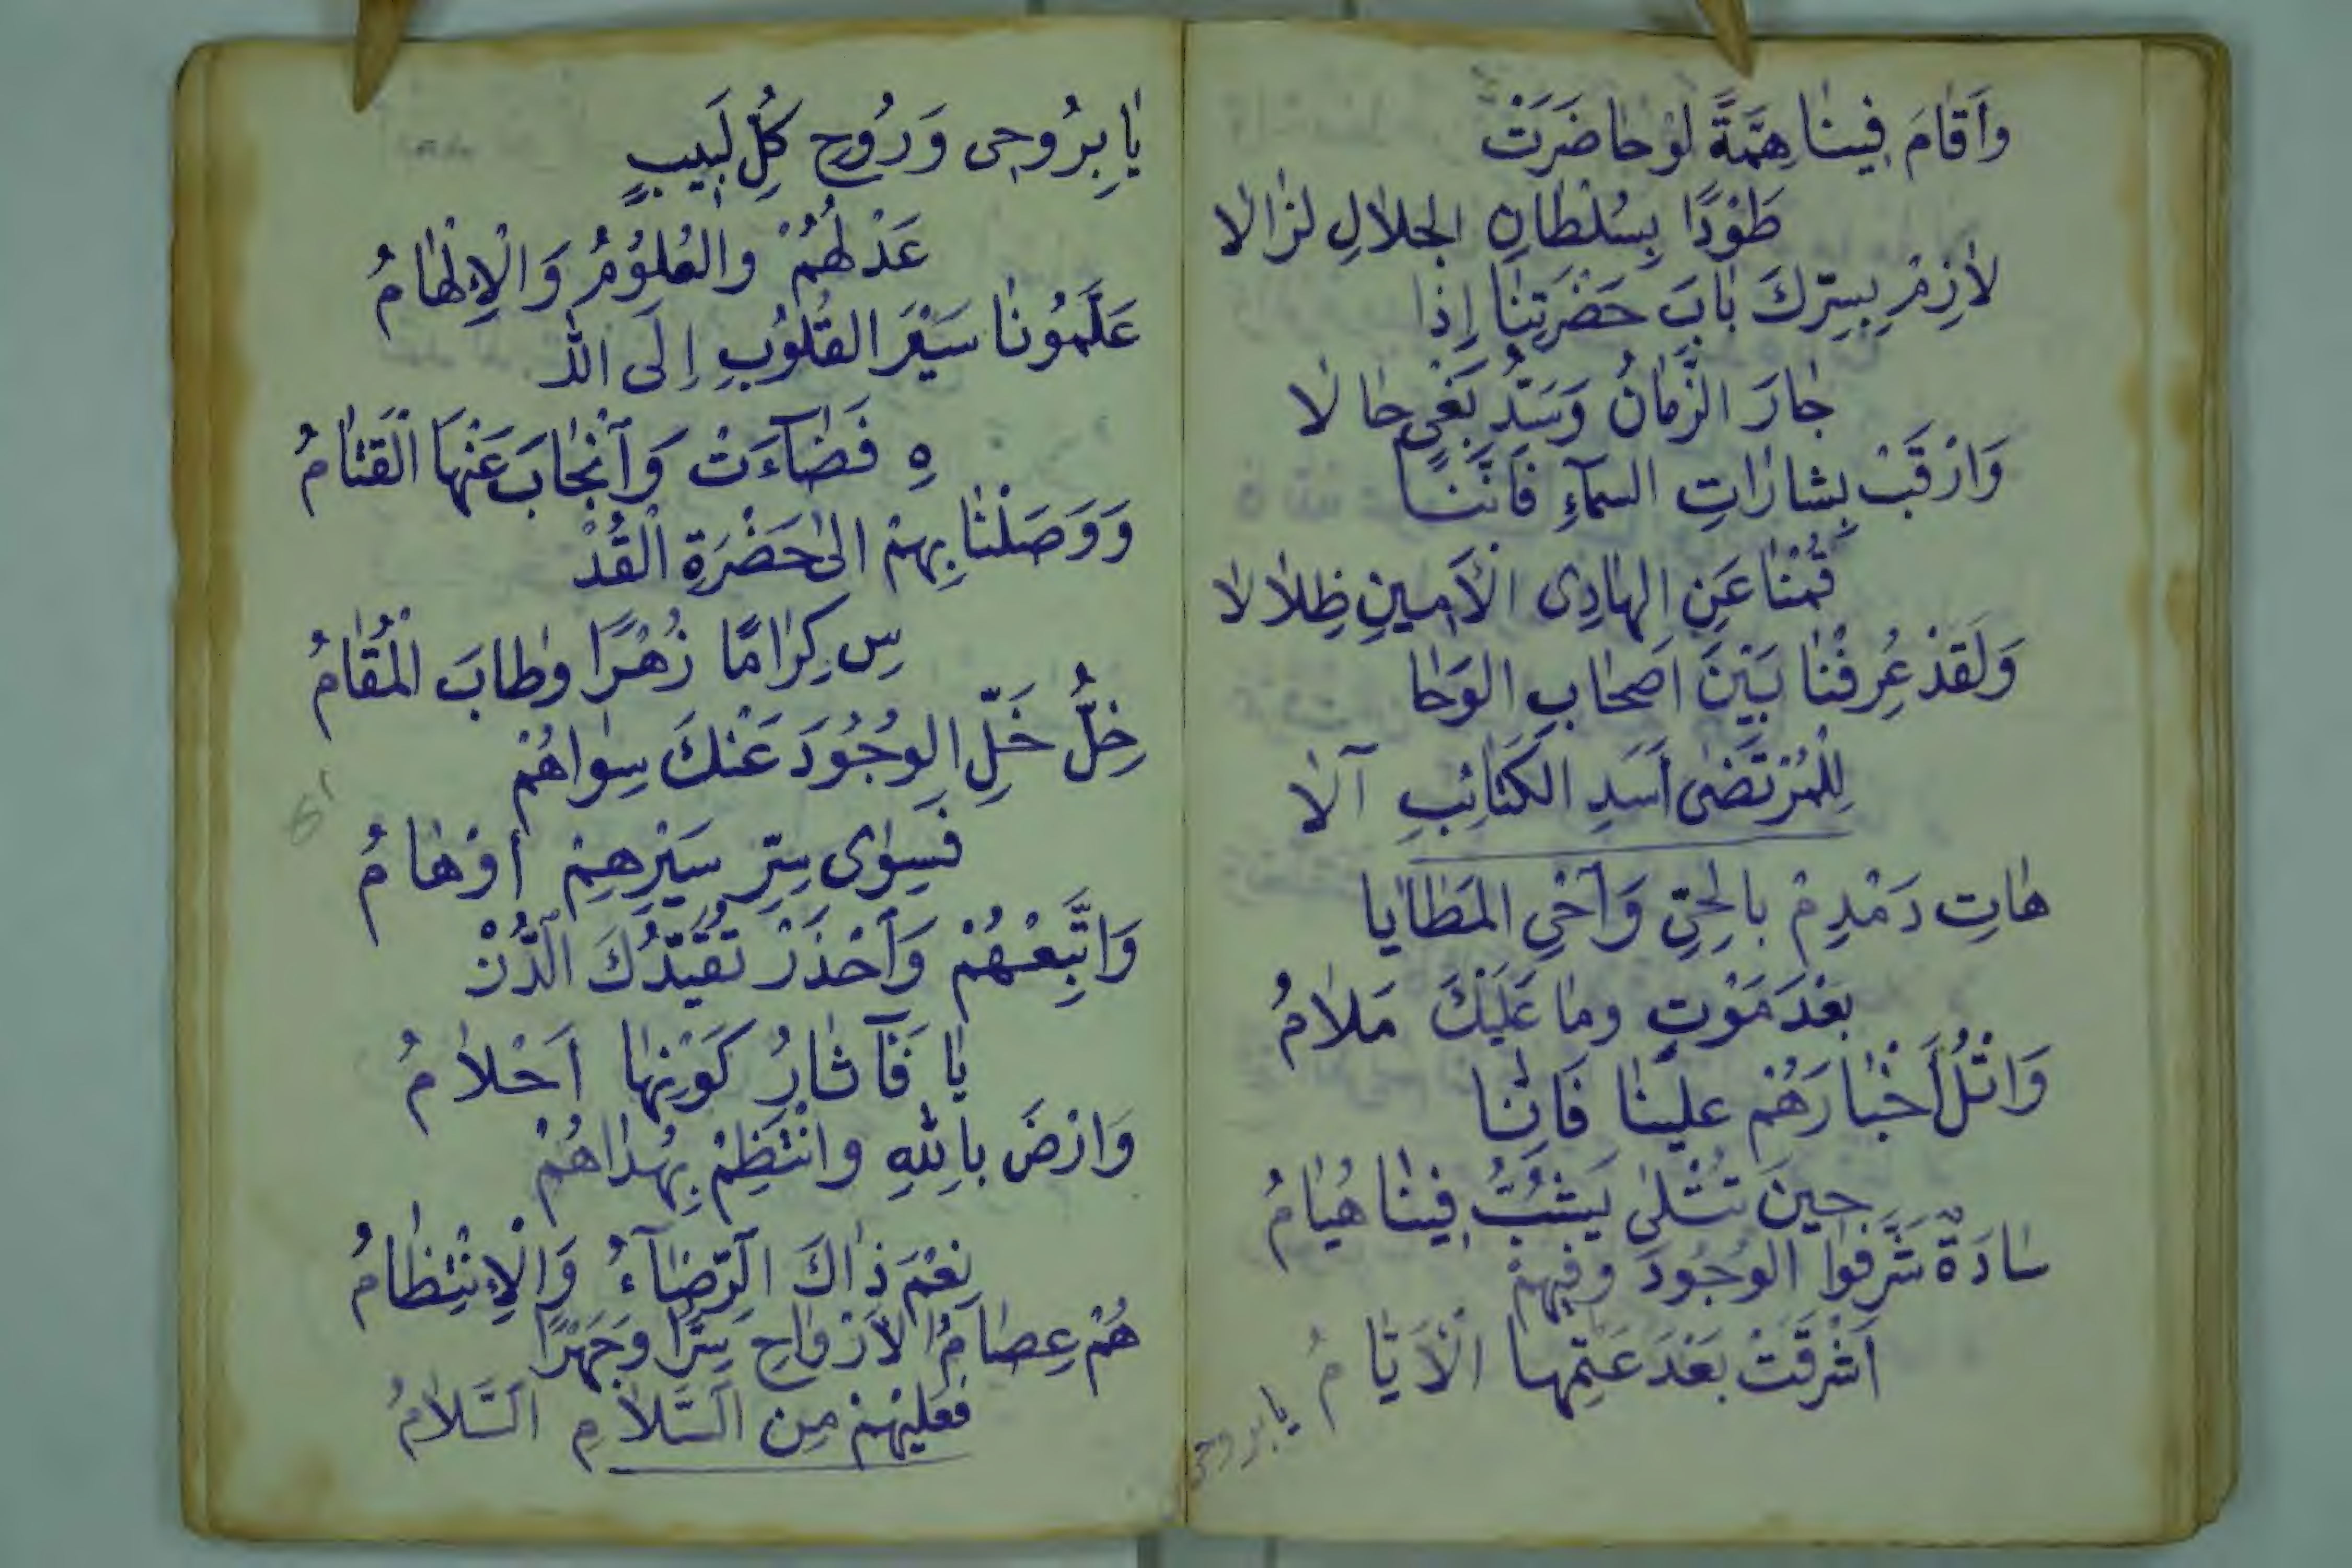 وَاَقَامَ فِينَا هِمَّةً لَوْ حَاضَرَتْ
طَوْدًا بِسُلْطَانِ الجَلَالِ لَزَالَا
لَازِمْ بِسِرِّكَ بَابَ حَضْرَتِنَا اِذَا
جَارَ الزَّمَانُ وَسَدُّ بَغْيٍ حَالَا
وَارْقَبْ بِشَارَاتِ السمآءِ فَاَنَّنَا
قُمْنَا عَنِ الهَادِى الْاَمِينِ ظِلَالَا
وَلَقَدْ عُرِفْنَا بَيْنَ اَصْحَابِ الوَحَا
لِلْمُرْتَضَى اَسَدِ الكَتَائِبِ آلَا
هَاتِ دَمْدِمْ بِالحَىِّ وَاَحْىِ المَطَايَا
بَعْدَ مَوْتٍ وَمَا عَلَيْكَ مَلَامُ
وَاتْلُ اَخْبَارَهُمْ عَلَيْنَا فَاِنَّا
حِينَ تُتْلَى يَشُبُّ فِينَا هُيَامُ
سَادَةٌ شَرَّفُوا الوُجُودَ وَفِيهِمْ
اَشْرَقَتْ بَعْدَ عَتْمِهَا الْاَيَّامُ
يا بروحى
يَا بِرُوحِى وَرُوحِ كُلِّ لَبِيبٍ
عَدْلُهُمْ وَالعُلُوْمُ وَالْاِلْهَامُ
عَلَّمُونَا سَيْرَ القُلُوبِ اِلَى اللّٰ
هِ فَضَآءَتْ وَآنْجَابَ عَنْهَا الْقَتَامُ
وَوَصَلْنَا بِهِمْ اِلَى حَضْرَةِ الْقُدْ
سِ كِرَامًا زُهْرًا وَطَابَ الْمُقَامُ
خِلُّ خَلِّ الوُجُودَ عَنْكَ سِوَاهُمْ
فَسِوَى سِرِّ سَيْرِهِمْ اَوْهَامُ
وَاتَّبِعْهُمْ وَاَحْذَرْ تُقَيِّدُكَ الدُّنْ
يَا فَآثَارُ كَوْنِهَا اَحْلَامُ
وَارْضَ بِاللهِ وَانْتَظِمْ بِهُدَاهُمْ
نِعْمَ ذَاكَ الرِّضَآءُ وَالْاِنْتِظَامُ
هُمْ عِصَامُ الْاَرْوَاحِ سِرًّا وَجَهْرًا
فَعَلَيْهِمْ مِنَ السَّلَامِ السَّلَامُ